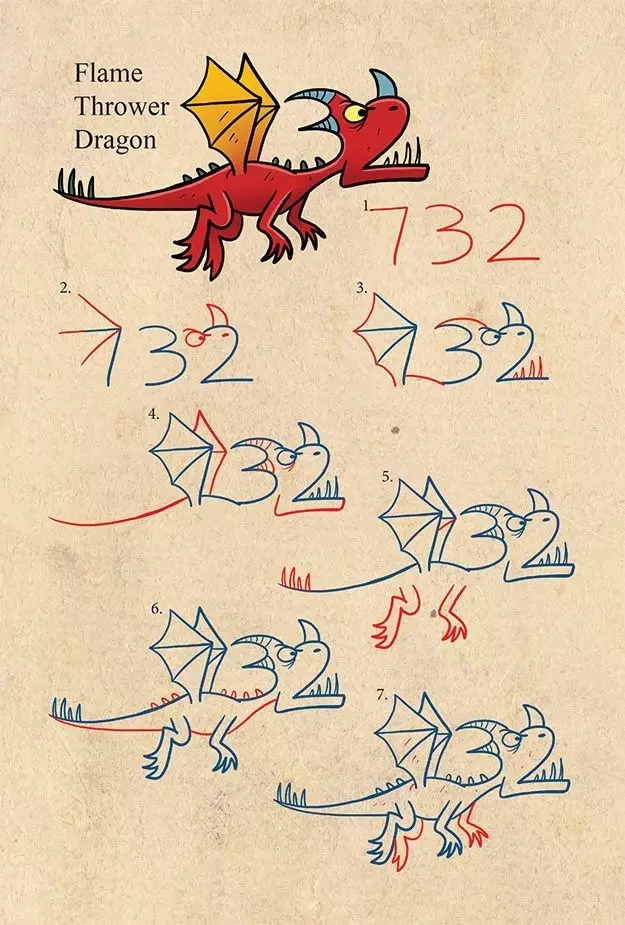 Flame
Thrower
Dragon
1.
732
2.
732
3.
32
4.
5.
6.
7.